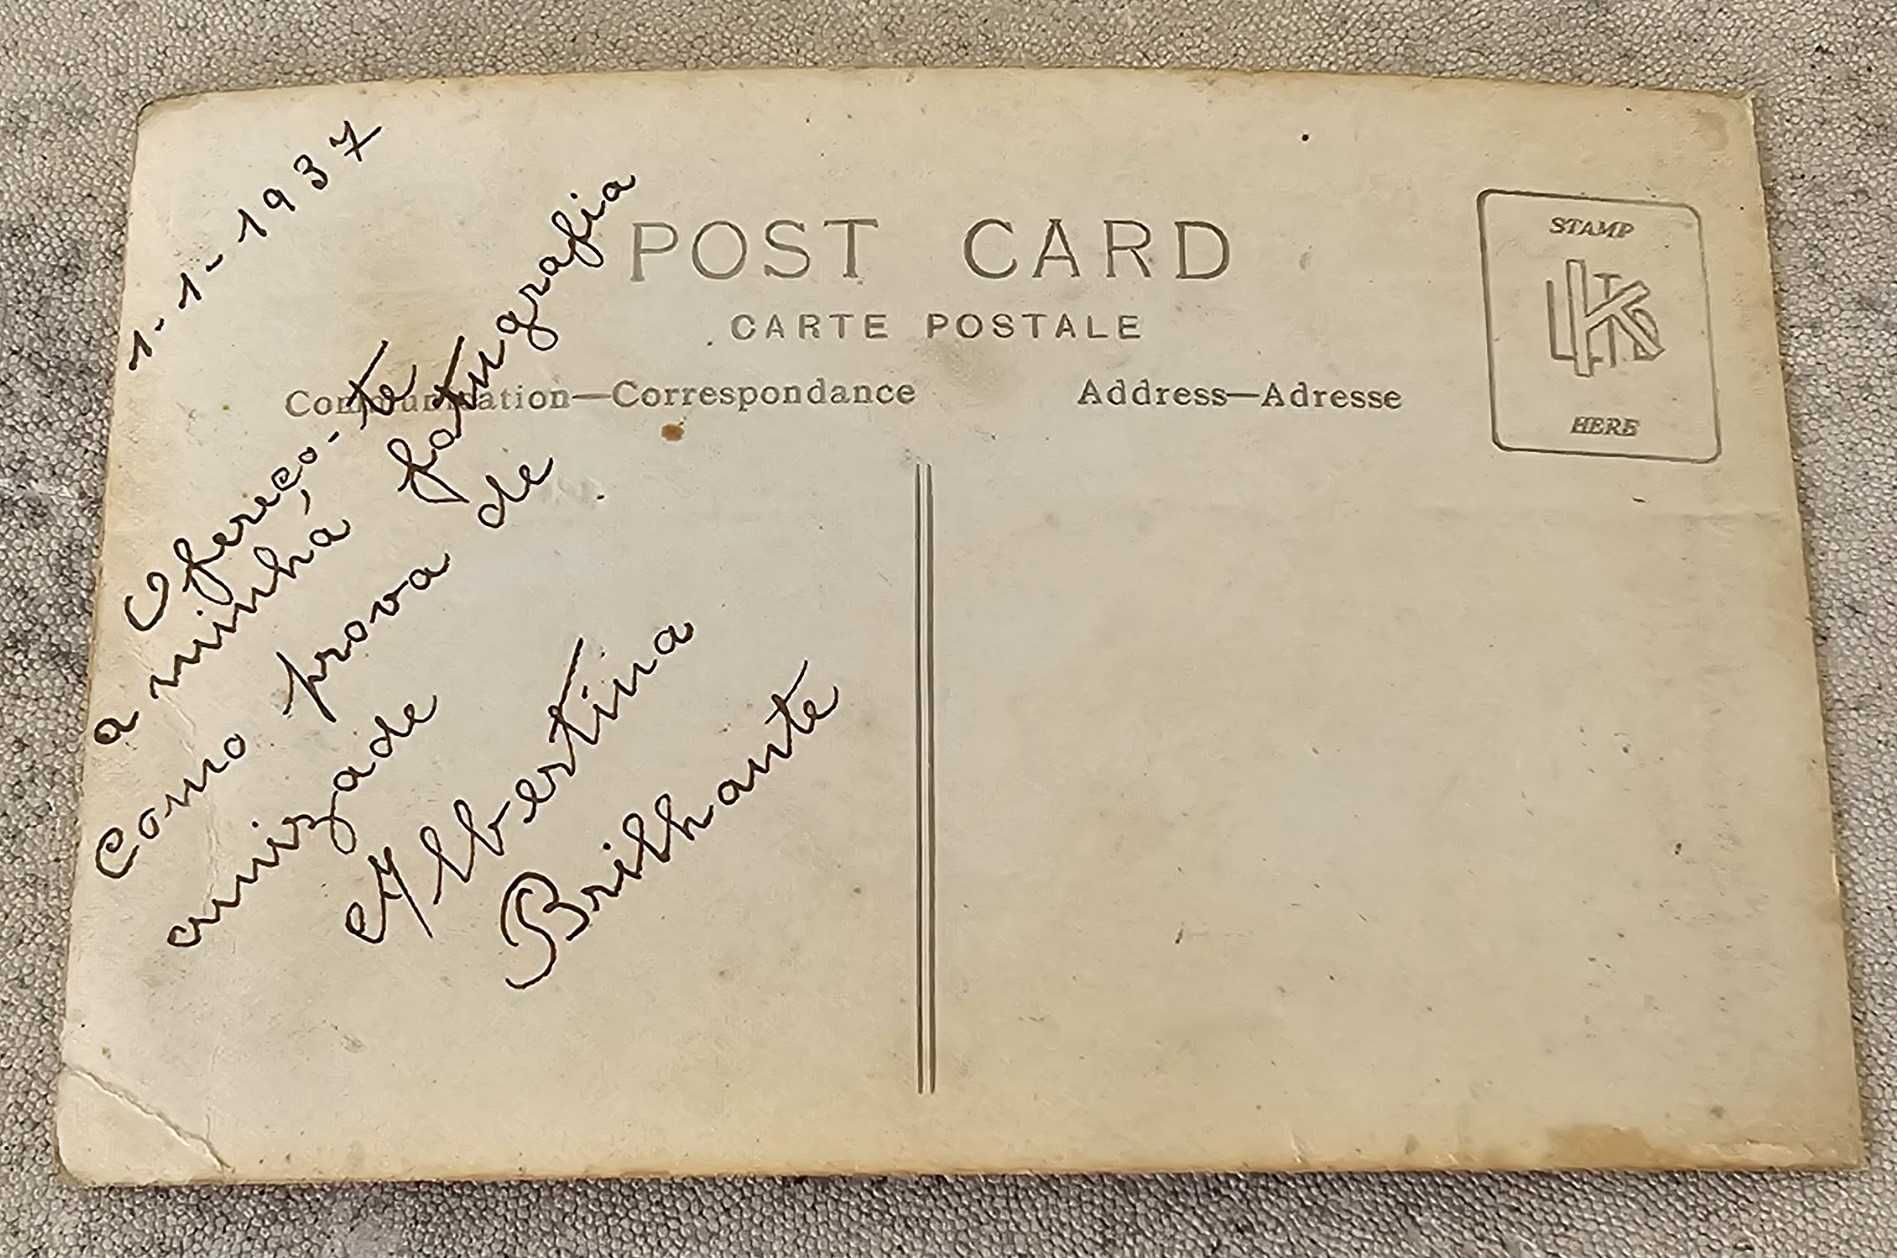 1-1-1937
Ofereço-te
a minha fotugrafia
como prova de
amizade
Albertina
Brilhante
POST CARD
CARTE POSTALE
Communication—Correspondance
Address—Adresse
STAMP
HERE